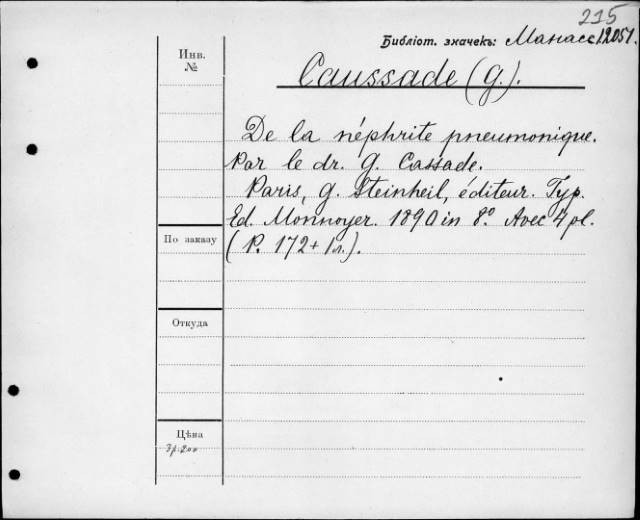 215
Библіот. значекъ: Манасс 12051.
Инв.
№
Caussade (G.).
De la néphrite pneumonique.
Par le dr. G. Cassade.
Paris, G. Steinheil, éditeur. Typ.
Ed. Monnoyer. 1890 in 8º. Avec 4 pl.
(P. 172 + 1 л.).
По заказу
Откуда
Цѣна